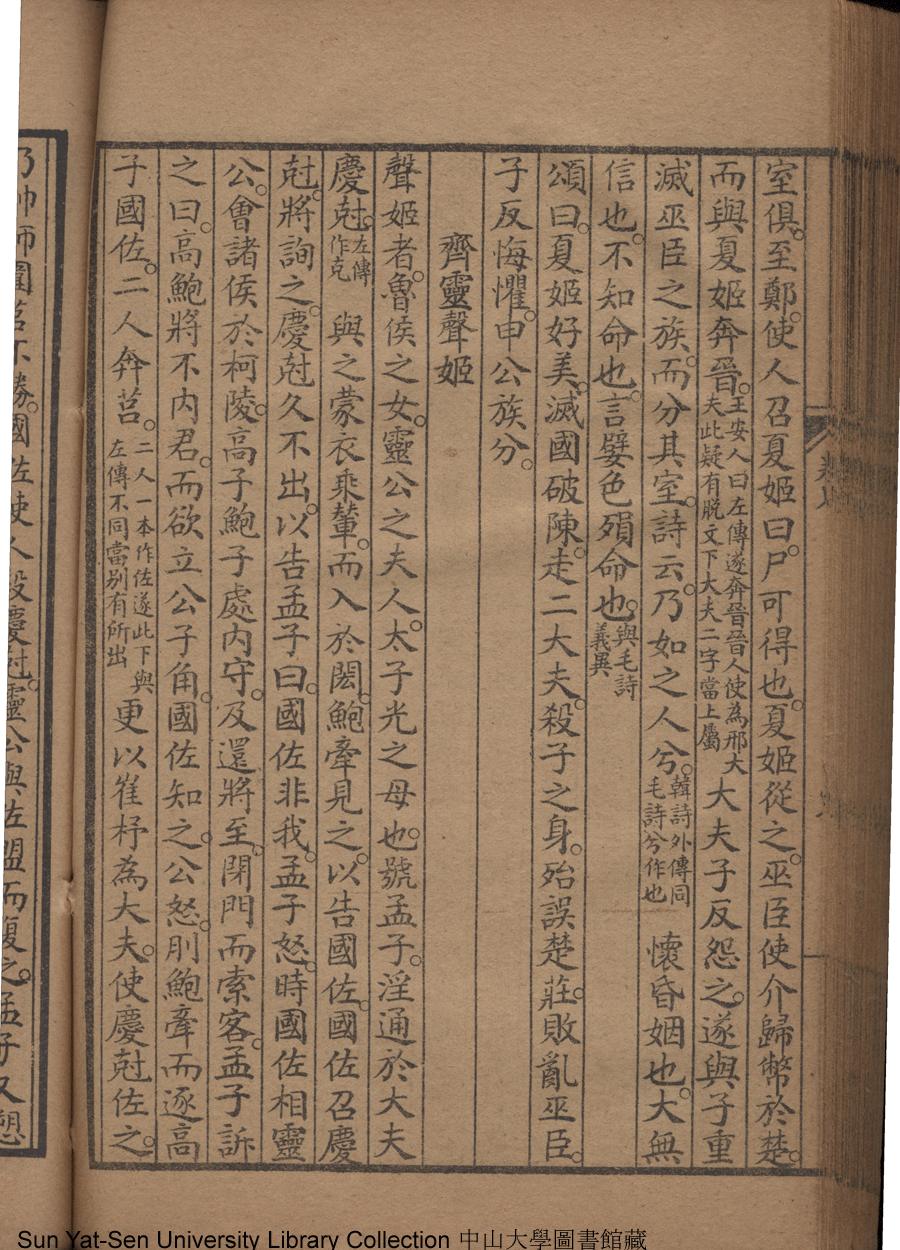 室俱。至鄭使人召夏姬曰。尸可得也。夏姬從之。巫臣使介歸幣於楚。
而與夏姬奔晉。王安人曰左傳遂奔晉晉人使為邢大夫此疑有脫文下大夫二字當上屬大夫子反怨之。遂與子重
滅巫臣之族。而分其室。詩云。乃如之人兮。韓詩外傳同毛詩兮作也懷昏姻也。大無
信也。不知命也。言嬖色殞命也。與毛詩義異
頌曰。夏姬好美。滅國破陳。走二大夫。殺子之身。殆誤楚莊。敗亂巫臣。
子反悔懼。申公族分。
齊靈聲姬
聲姬者。魯侯之女。靈公之夫人。太子光之母也。號孟子。淫通於大夫
慶尅。左傳作克與之蒙衣乘輦。而入於閎。鮑牽見之。以告國佐。國佐召慶
尅。將詢之。慶尅久不出。以告孟子曰。國佐非我。孟子怒。時國佐相靈
公。會諸侯於柯陵。高子鮑子處內守。及還將至。閉門而索客。孟子訴
之曰。高鮑將不內君。而欲立公子角。國佐知之。公怒。刖鮑牽而逐高
子國佐。二人奔莒。二人一本作佐遂此下與左傳不同當别有所出更以崔杼為大夫。使慶尅佐之。
乃帥師圍莒不勝。國佐使人殺慶尅。靈公與佐盟而復之。孟子又愬
Sun Yat-Sen University Library Collection 中山大學圖書館藏